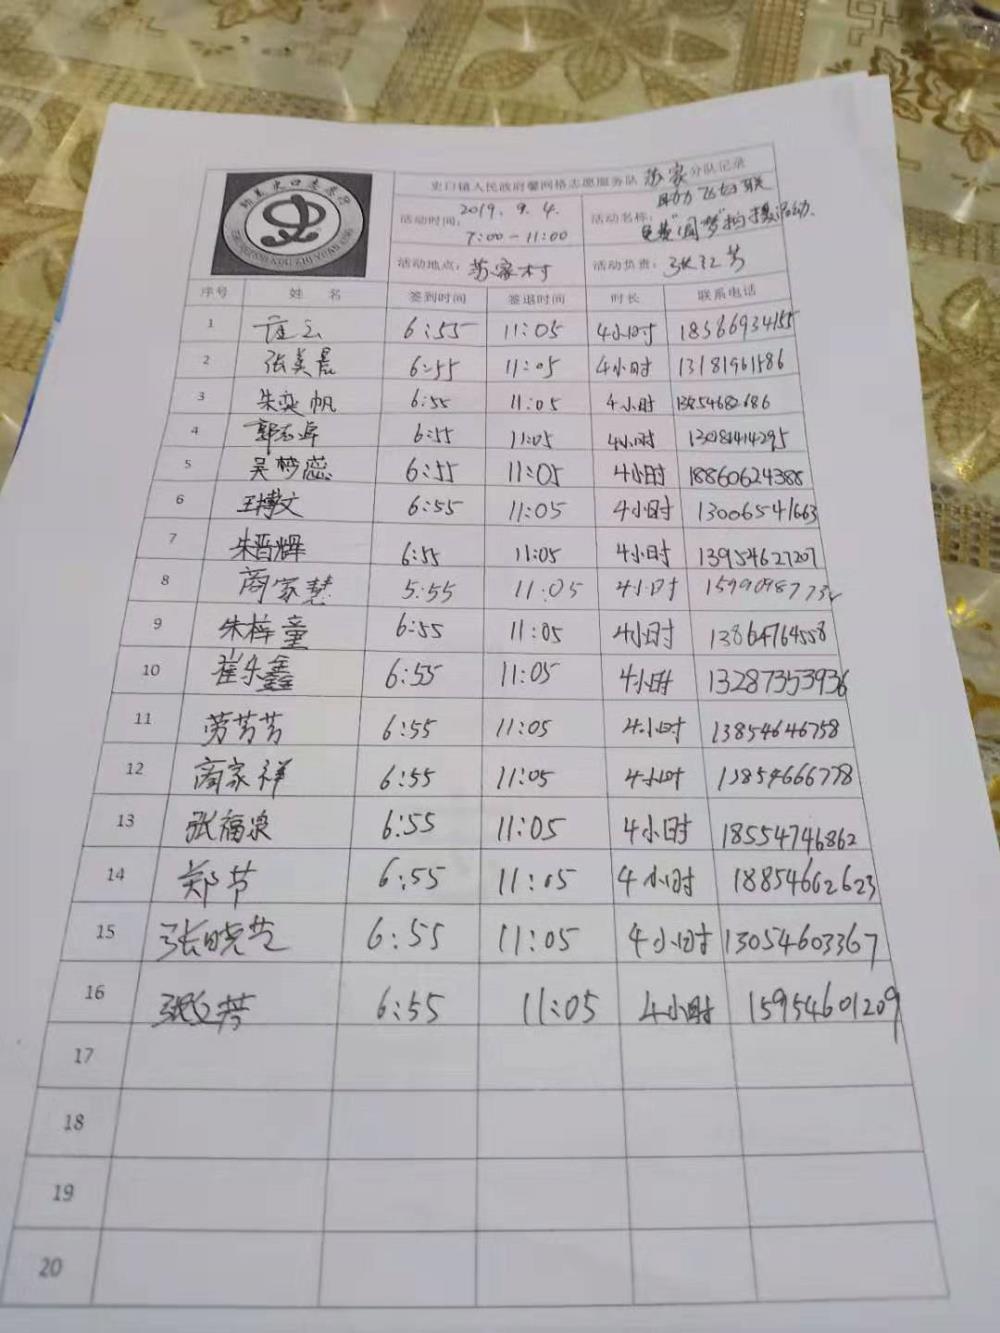 史口镇人民政府馨网格志愿服务队 苏家 分队记录
活动时间: 2019. 9. 4. 7:00-11:00
活动名称: 助力飞 妇联 免费"圆梦"拍摄活动.
活动地点: 苏家村 活动负责: 张红芳
序号 姓 名 签到时间 签退时间 时长 联系电话
1 6:55 11:05 4小时 18566934155
2 张美晨 6:55 11:05 4小时 13181961586
3 朱奕帆 6:55 11:05 4小时 13854682686
4 郭 6:55 11:05 4小时 13081414295
5 吴梦蕊 6:55 11:05 4小时 18860624388
6 王博文 6:55 11:05 4小时 13006541663
7 朱晋辉 6:55 11:05 4小时 13954627207
8 商家慧 5:55 11:05 4小时
9 朱梓童 6:55 11:05 4小时 13864764558
10 崔乐鑫 6:55 11:05 4小时 13287353936
11 劳芳芳 6:55 11:05 4小时 13854646758
12 商家祥 6:55 11:05 4小时 13854666778
13 张福泉 6:55 11:05 4小时 18554746862
14 郑节 6:55 11:05 4小时 18854662623
15 张晓芝 6:55 11:05 4小时 13054603367
16 6:55 11:05 4小时 15954601209
17
18
19
20